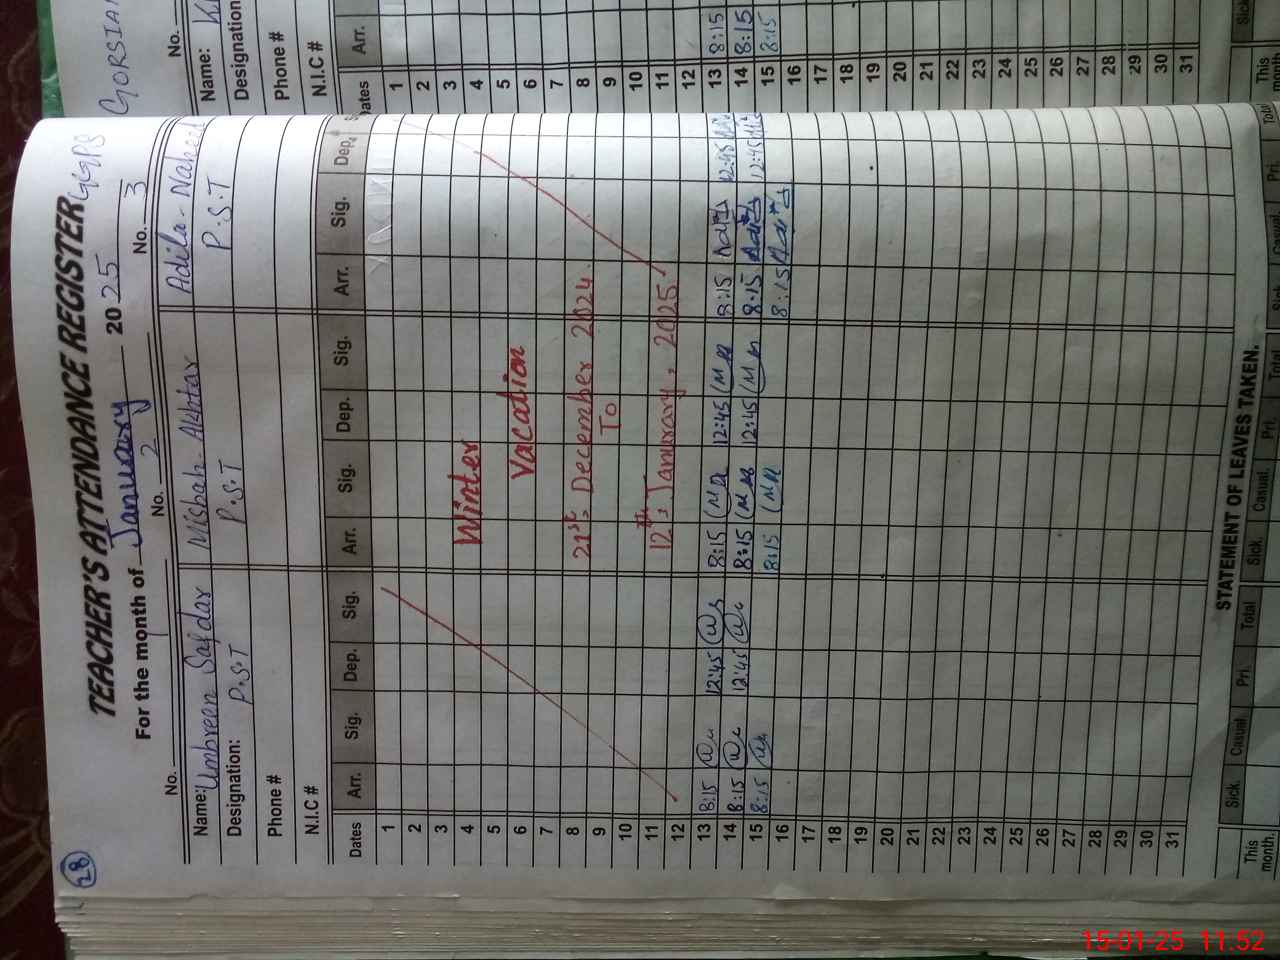 28
TEACHER'S ATTENDANCE REGISTER GGPS GORSIAN
For the month of January 2025
No. No. 2 No. 3
Name: Umbreen Safdar Misbah Akhtar Adila Naheed
Designation: P.S.T P.S.T P.S.T
Phone #
N.I.C #
Dates Arr. Sig. Dep. Sig. Arr. Sig. Dep. Sig. Arr. Sig. Dep.
1
2
3
4 Winter
5
6 Vacation
7
8 21st, December 2024.
9 To
10
11 12th, Janurary, 2025.
12
13 8:15 12:45 8:15 12:45 8:15 12:45
14 8:15 12:45 8:15 12:45 8:15 12:45
15 8:15 8:15 8:15
16
17
18
19
20
21
22
23
24
25
26
27
28
29
30
31
STATEMENT OF LEAVES TAKEN.
Sick. Casual. Pri. Total Sick. Casual. Pri. Tot. Sick. Casual Pri. Total
This month.
No.
Name:
Designation
Phone #
N.I.C #
Dates Arr.
1
2
3
4
5
6
7
8
9
10
11
12
13 8:15
14 8:15
15 8:15
16
17
18
19
20
21
22
23
24
25
26
27
28
29
30
31
Sick
This month
15-01-25 11:52